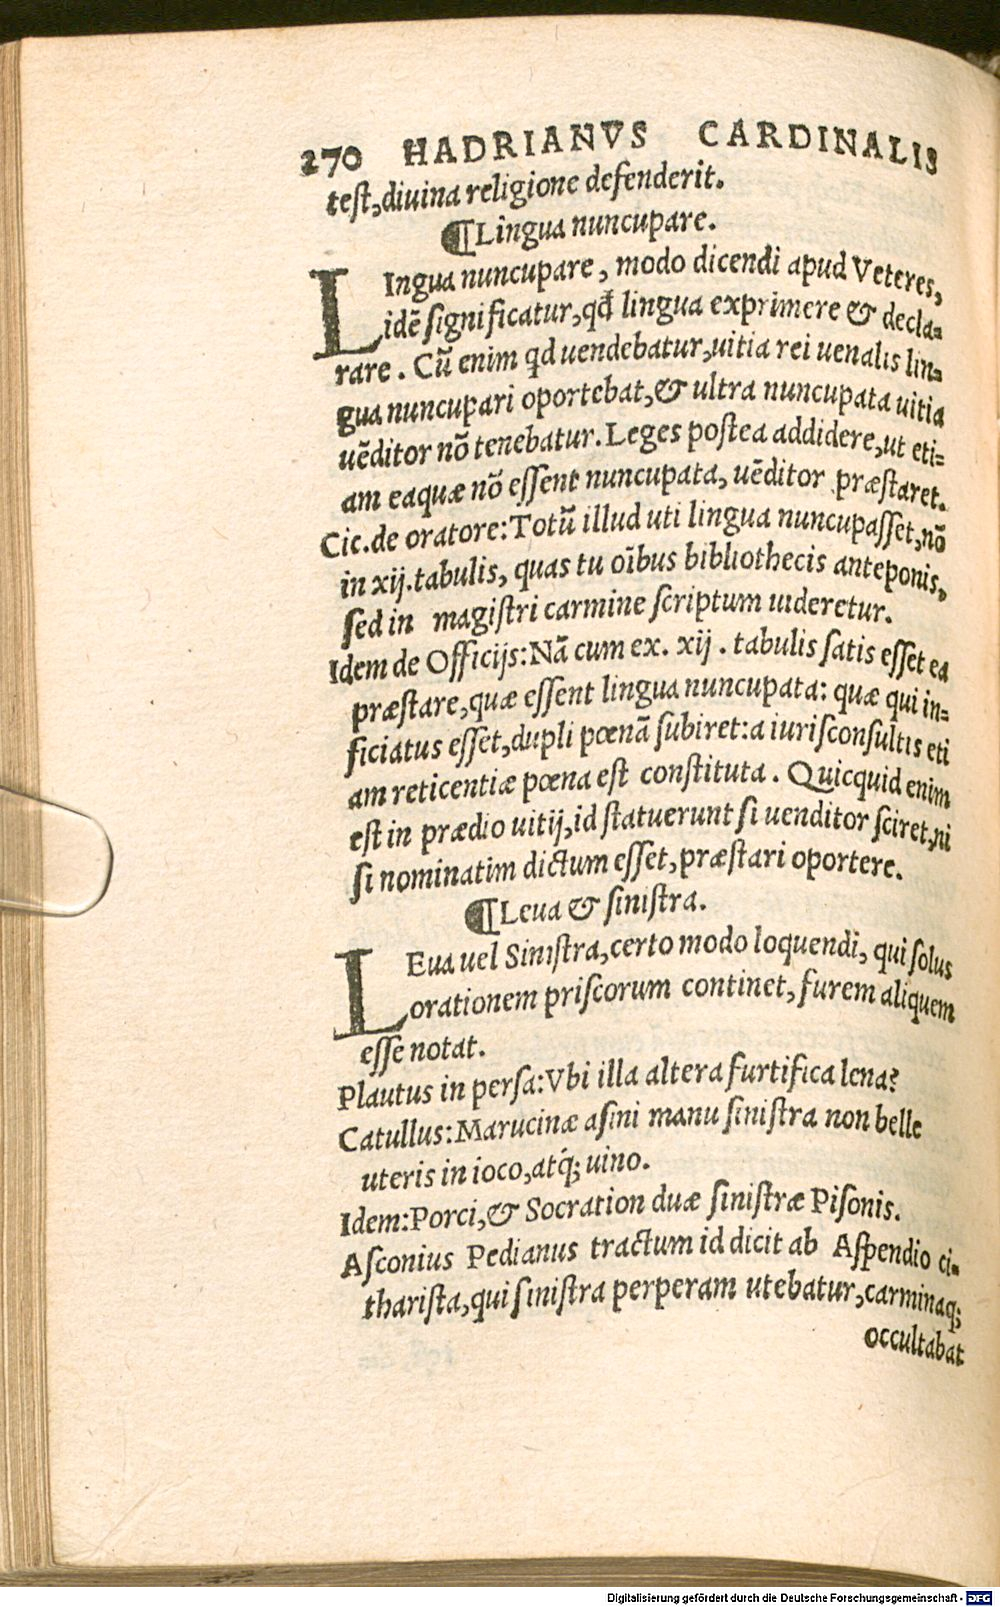 270 HADRIANVS CARDINALIS
teſt,diuina religione defenderit.
¶Lingua nuncupare.
LIngua nuncupare, modo dicendi apud Veteres,
idẽ ſignificatur,qđ lingua exprimere & decla-
rare. Cũ enim qd uendebatur,uitia rei uenalis lin-
gua nuncupari oportebat,& ultra nuncupata uitia
uẽditor nõ tenebatur.Leges poſtea addidere,ut eti-
am eaquæ nõ eſſent nuncupata, uẽditor præſtaret.
Cic.de oratore:Totũ illud uti lingua nuncupaſſet,nõ
in xij.tabulis, quas tu oĩbus bibliothecis anteponis,
ſed in magiſtri carmine ſcriptum uideretur.
Idem de Officijs:Nã cum ex. xij. tabulis ſatis eſſet ea
præſtare,quæ eſſent lingua nuncupata: quæ qui in-
ficiatus eſſet,dupli pœnã ſubiret:a iuriſconſultis eti
am reticentiæ pœna eſt conſtituta. Quicquid enim
eſt in prædio uitij,id ſtatuerunt ſi uenditor ſciret,ni
ſi nominatim dictum eſſet,præſtari oportere.
¶Leua & ſiniſtra.
LEua uel Siniſtra,certo modo loquendi, qui ſolus
orationem priſcorum continet, furem aliquem
eſſe notat.
Plautus in perſa:Vbi illa altera furtifica lena?
Catullus:Marucinæ aſini manu ſiniſtra non belle
uteris in ioco,atq́; uino.
Idem:Porci,& Socration duæ ſiniſtræ Piſonis.
Aſconius Pedianus tractum id dicit ab Aſpendio ci-
thariſta,qui ſiniſtra perperam utebatur,carminaq;
occultabat
Digitalisierung gefördert durch die Deutsche Forschungsgemeinschaft - DFG